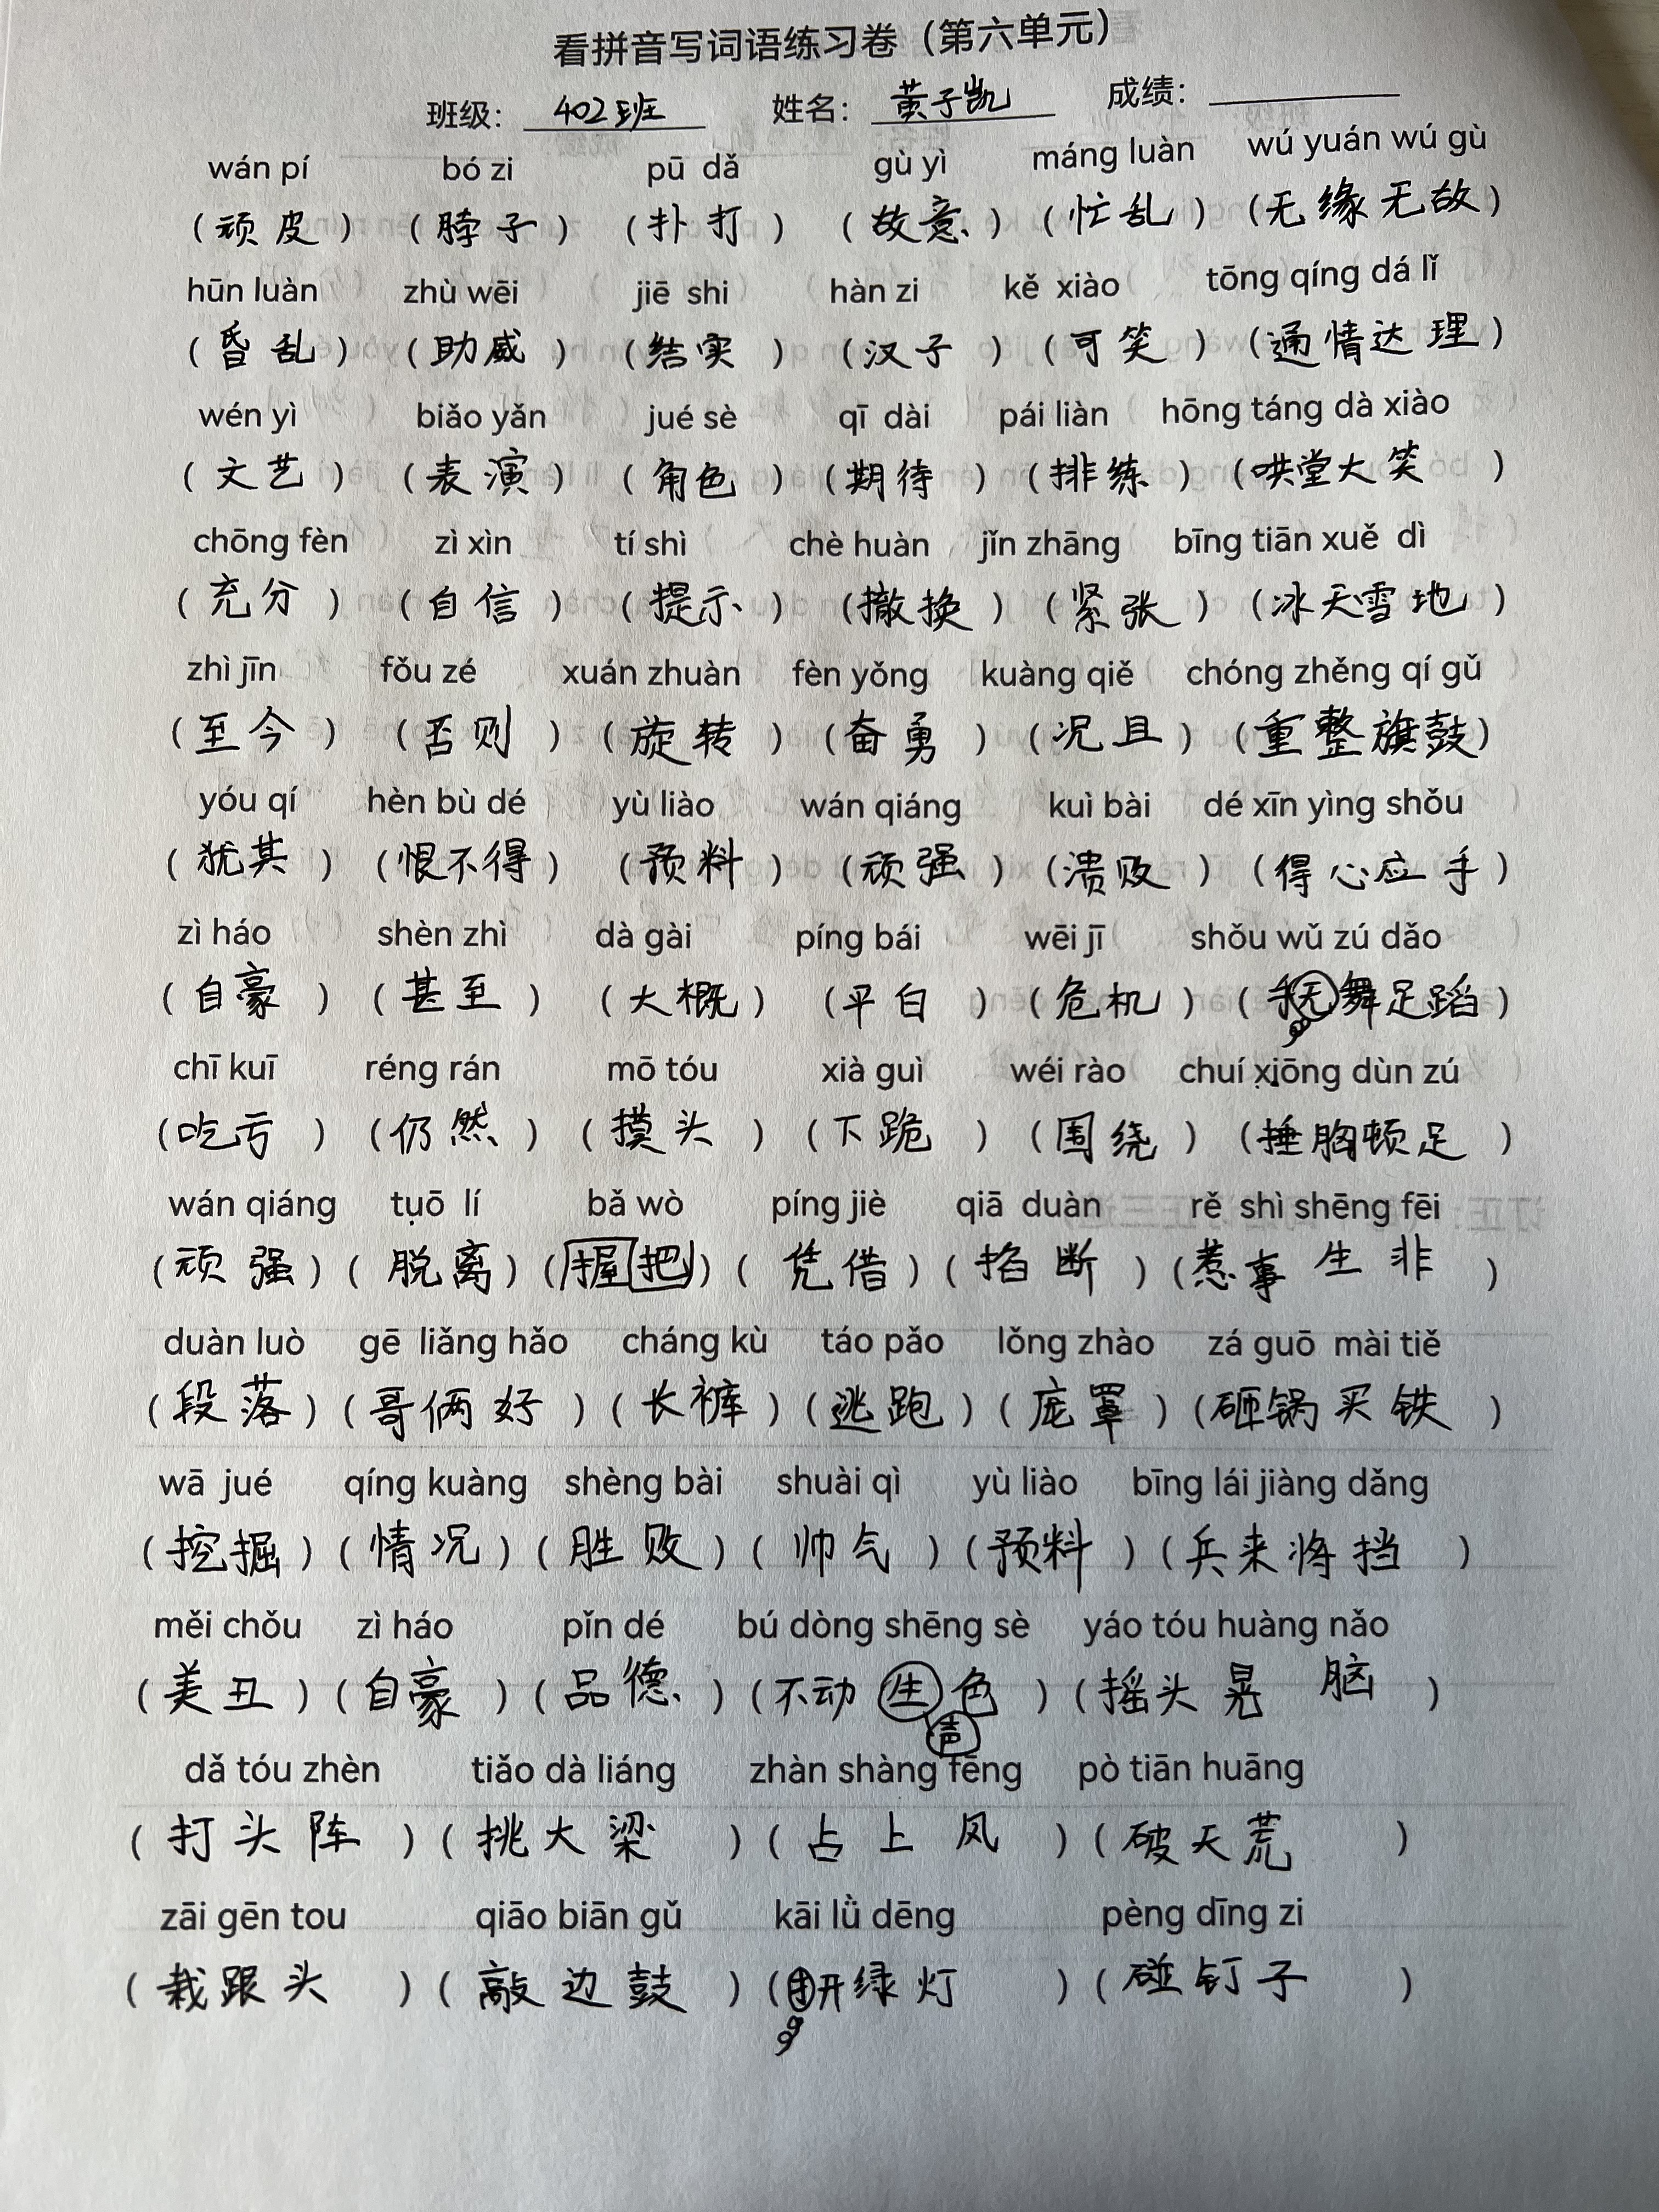 看拼音写词语练习卷（第六单元）
班级： 402班 姓名： 黄子凯 成绩：
wán pí bó zi pū dǎ gù yì máng luàn wú yuán wú gù
（顽皮）（脖子）（扑打）（故意）（忙乱）（无缘无故）
hūn luàn zhù wēi jiē shi hàn zi kě xiào tōng qíng dá lǐ
（昏乱）（助威）（结实）（汉子）（可笑）（通情达理）
wén yì biǎo yǎn jué sè qī dài pái liàn hōng táng dà xiào
（文艺）（表演）（角色）（期待）（排练）（哄堂大笑）
chōng fèn zì xìn tí shì chè huàn jǐn zhāng bīng tiān xuě dì
（充分）（自信）（提示）（撤换）（紧张）（冰天雪地）
zhì jīn fǒu zé xuán zhuàn fèn yǒng kuàng qiě chóng zhěng qí gǔ
（至今）（否则）（旋转）（奋勇）（况且）（重整旗鼓）
yóu qí hèn bù dé yù liào wán qiáng kuì bài dé xīn yìng shǒu
（犹其）（恨不得）（预料）（顽强）（溃败）（得心应手）
zì háo shèn zhì dà gài píng bái wēi jī shǒu wǔ zú dǎo
（自豪）（甚至）（大概）（平白）（危机）（手无舞足蹈）
chī kuī réng rán mō tóu xià guì wéi rào chuí xiōng dùn zú
（吃亏）（仍然）（摸头）（下跪）（围绕）（捶胸顿足）
wán qiáng tuō lí bǎ wò píng jiè qiā duàn rě shì shēng fēi
（顽强）（脱离）（握把）（凭借）（掐断）（惹事生非）
duàn luò gē liǎng hǎo cháng kù táo pǎo lǒng zhào zá guō mài tiě
（段落）（哥俩好）（长裤）（逃跑）（庞罩）（砸锅买铁）
wā jué qíng kuàng shèng bài shuài qì yù liào bīng lái jiàng dǎng
（挖掘）（情况）（胜败）（帅气）（预料）（兵来将挡）
měi chǒu zì háo pǐn dé bú dòng shēng sè yáo tóu huàng nǎo
（美丑）（自豪）（品德）（不动生色）（摇头晃脑）
声
dǎ tóu zhèn tiǎo dà liáng zhàn shàng fēng pò tiān huāng
（打头阵）（挑大梁）（占上风）（破天荒）
zāi gēn tou qiāo biān gǔ kāi lǜ dēng pèng dīng zi
（栽跟头）（敲边鼓）（开绿灯）（碰钉子）